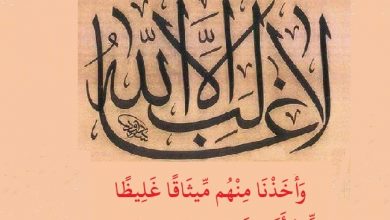 لا غالب إلا الله
وَأَخَذْنَا مِنْهُم مِّيثَاقًا غَلِيظًا